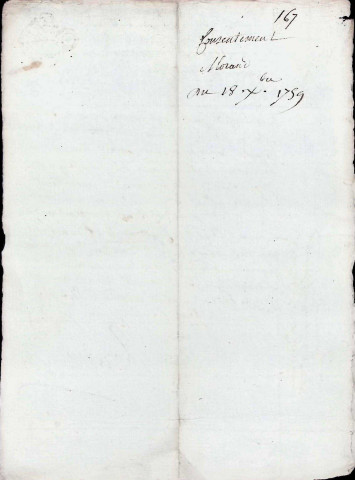 167
Consentement
Morand
du 18. Xbre 1759